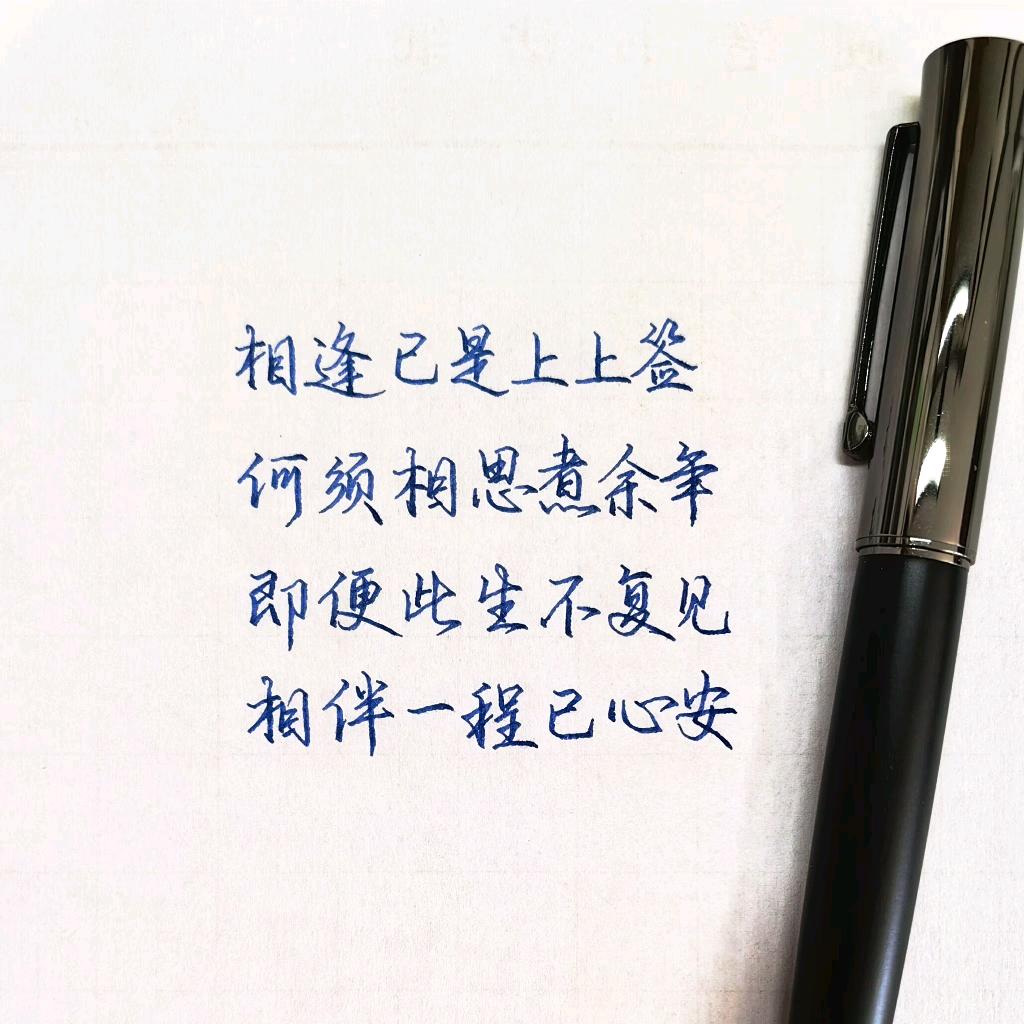 相逢已是上上签
何须相思煮余年
即便此生不复见
相伴一程已心安